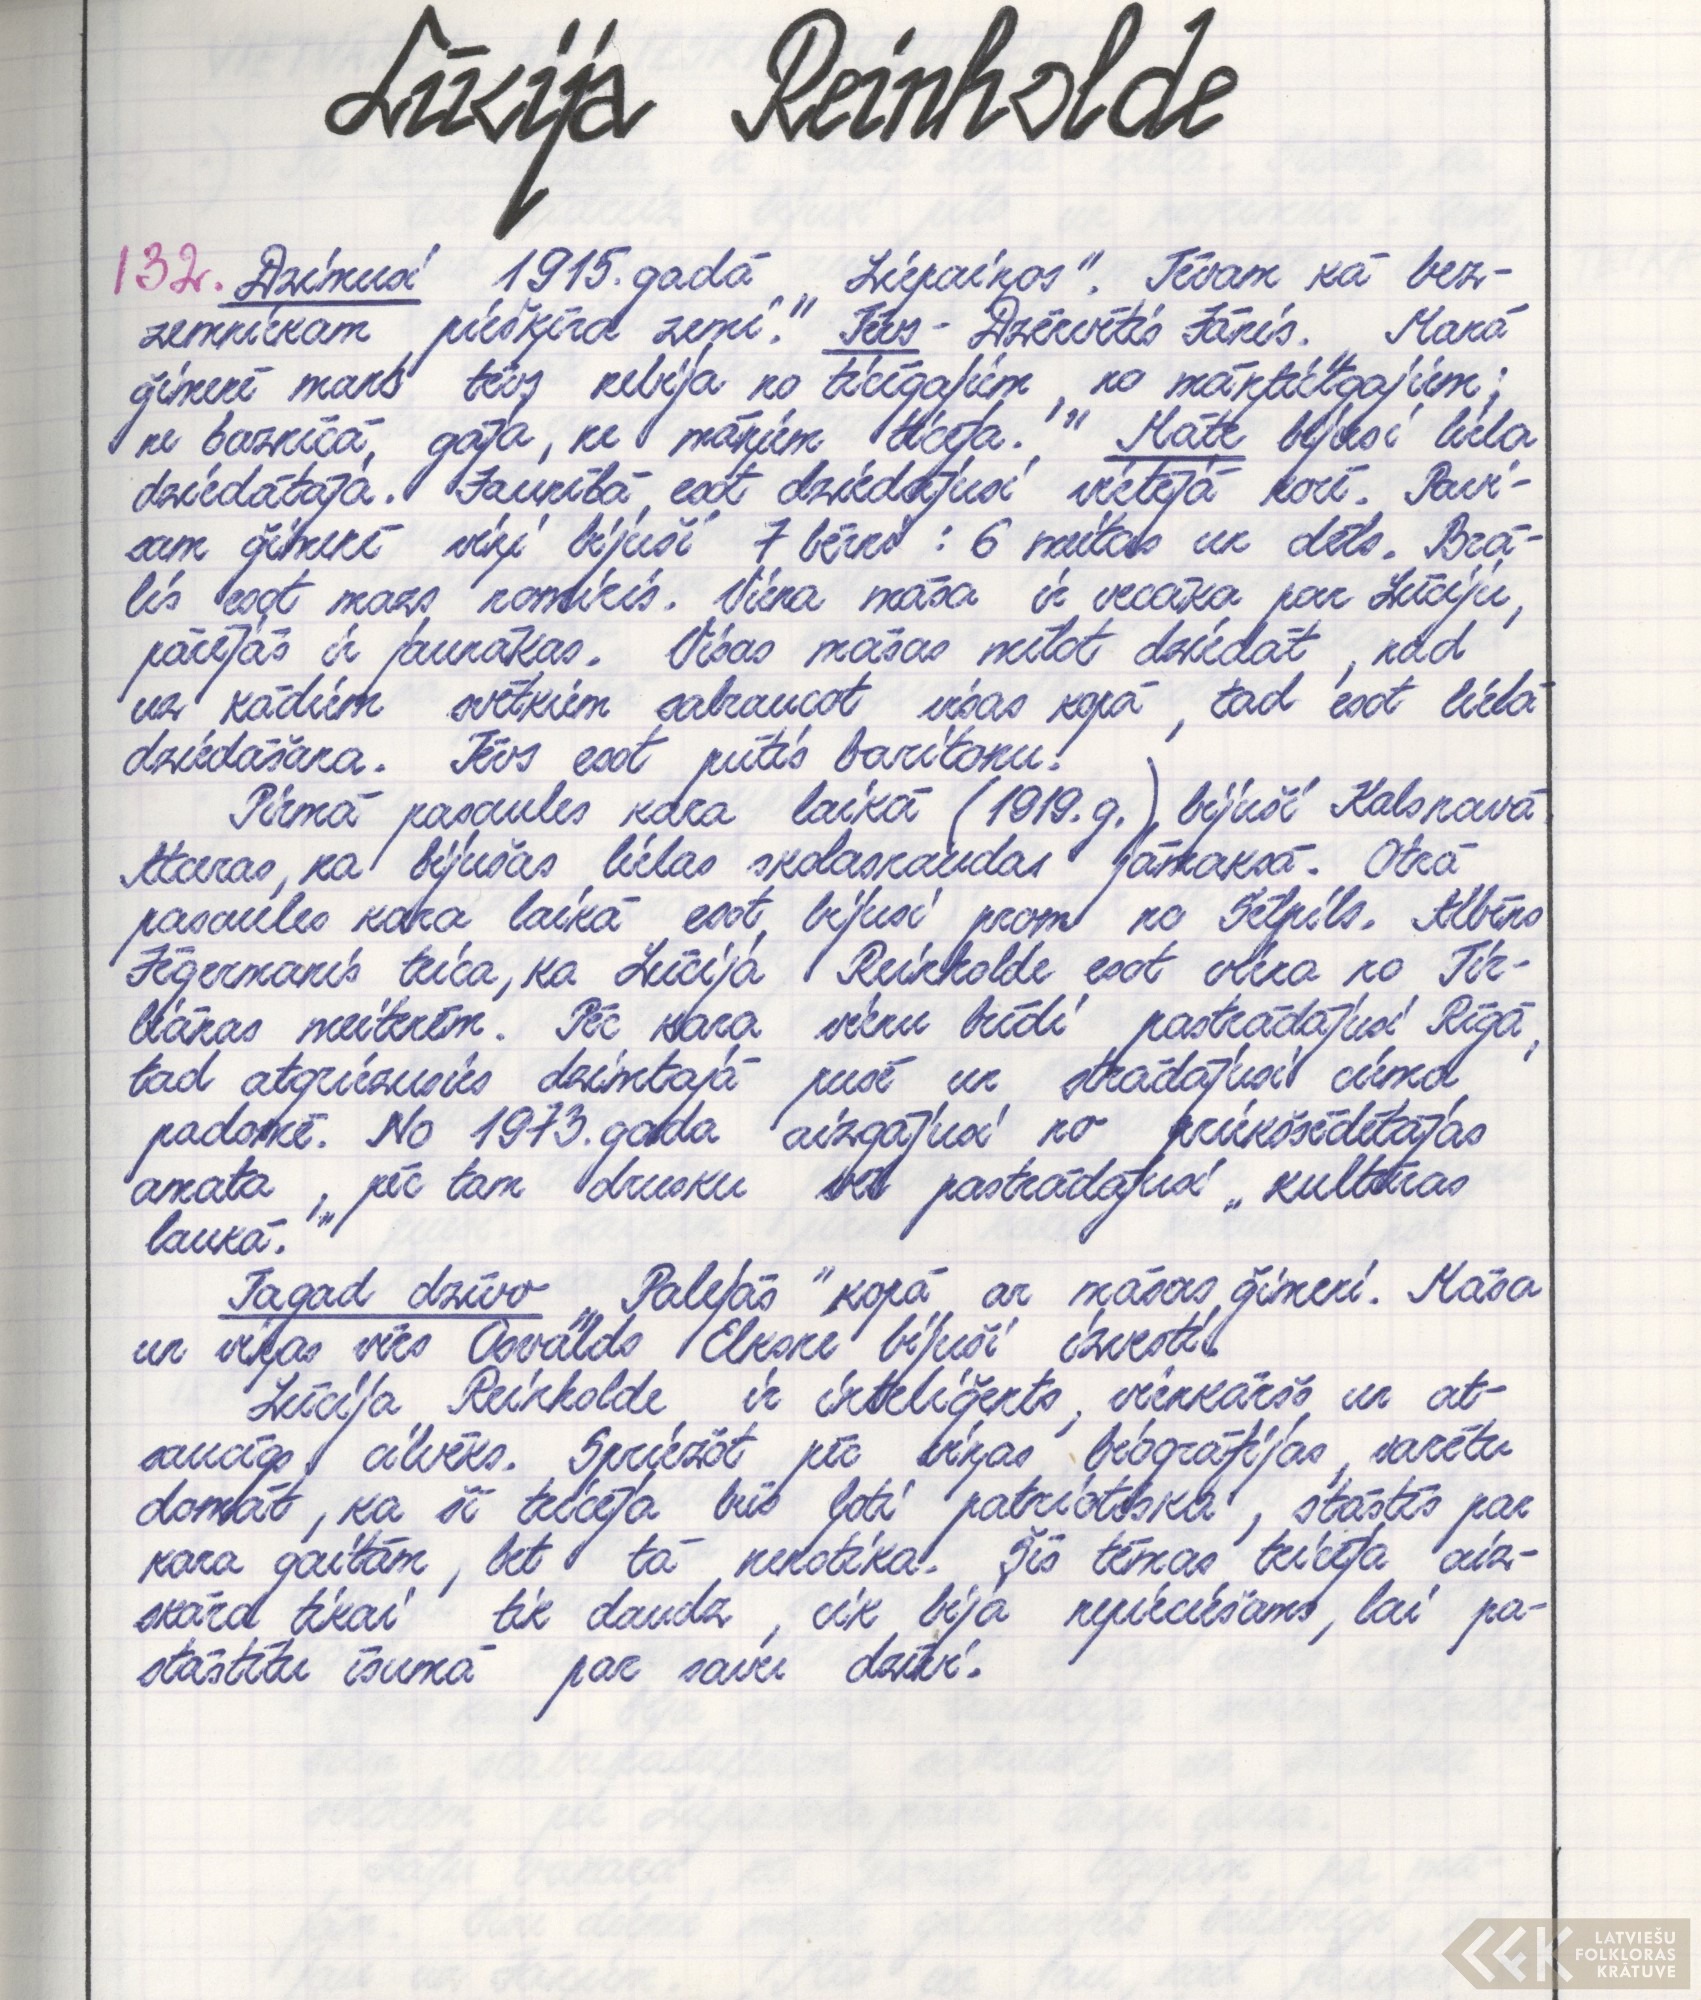 Lūcija Reinholde
132. Dzimusi 1915. gadā „Liepaiņos". Tēvam kā bez-
zemniekam piešķīra zemi." Tēvs - Dzērvītis Jānis. „Manā
ģimenē mans tēvs nebija no ticīgajiem, no māņticīgajiem;
ne baznīcā gāja, ne māņiem ticēja." Māte bijusi liela
dziedātāja. Jaunībā esot dziedājusi vietējā korī. Pavi-
sam ģimenē viņi bijuši 7 bērni: 6 meitas un dēls. Brā-
lis esot mazs nomiris. Viena māsa ir vecāka par Lūciju,
pārējās ir jaunākas. Visas māsas mīlot dziedāt, kad
uz kādiem svētkiem sabraucot visas kopā, tad esot lielā
dziedāšana. Tēvs esot pūtis baritonu.
Pirmā pasaules kara laikā (1919. g.) bijuši Kalsnavā.
Atceras, ka bijušas lielas skolasnaudas jāmaksā. Otrā
pasaules kara laikā esot bijusi prom no Sēlpils. Albīns
Jēgermanis teica, ka Lūcija Reinholde esot viena no Tīr-
liānas meitenēm. Pēc kara vienu brīdi pastrādājusi Rīgā,
tad atgriezusies dzimtajā pusē un strādājusi ciema
padomē. No 1973. gada aizgājusi no priekšsēdētājas
amata, pēc tam drusku vēl pastrādājusi „kultūras
laukā."
Tagad dzīvo „Palejās" kopā ar māsas ģimeni. Māsa
un viņas vīrs Osvalds Elksne bijuši izvesti.
Lūcija Reinholde ir inteliģents, vienkāršs un at-
saucīgs cilvēks. Spriežot pēc viņas biogrāfijas, varētu
domāt, ka šī teicēja būs ļoti patriotiska, stāstīs par
kara gaitām, bet tā nenotika. Šīs tēmas teicēja aiz-
skāra tikai tik daudz, cik bija nepieciešams, lai pa-
stāstītu īsumā par savu dzīvi.
LATVIEŠU
FOLKLORAS
KRĀTUVE